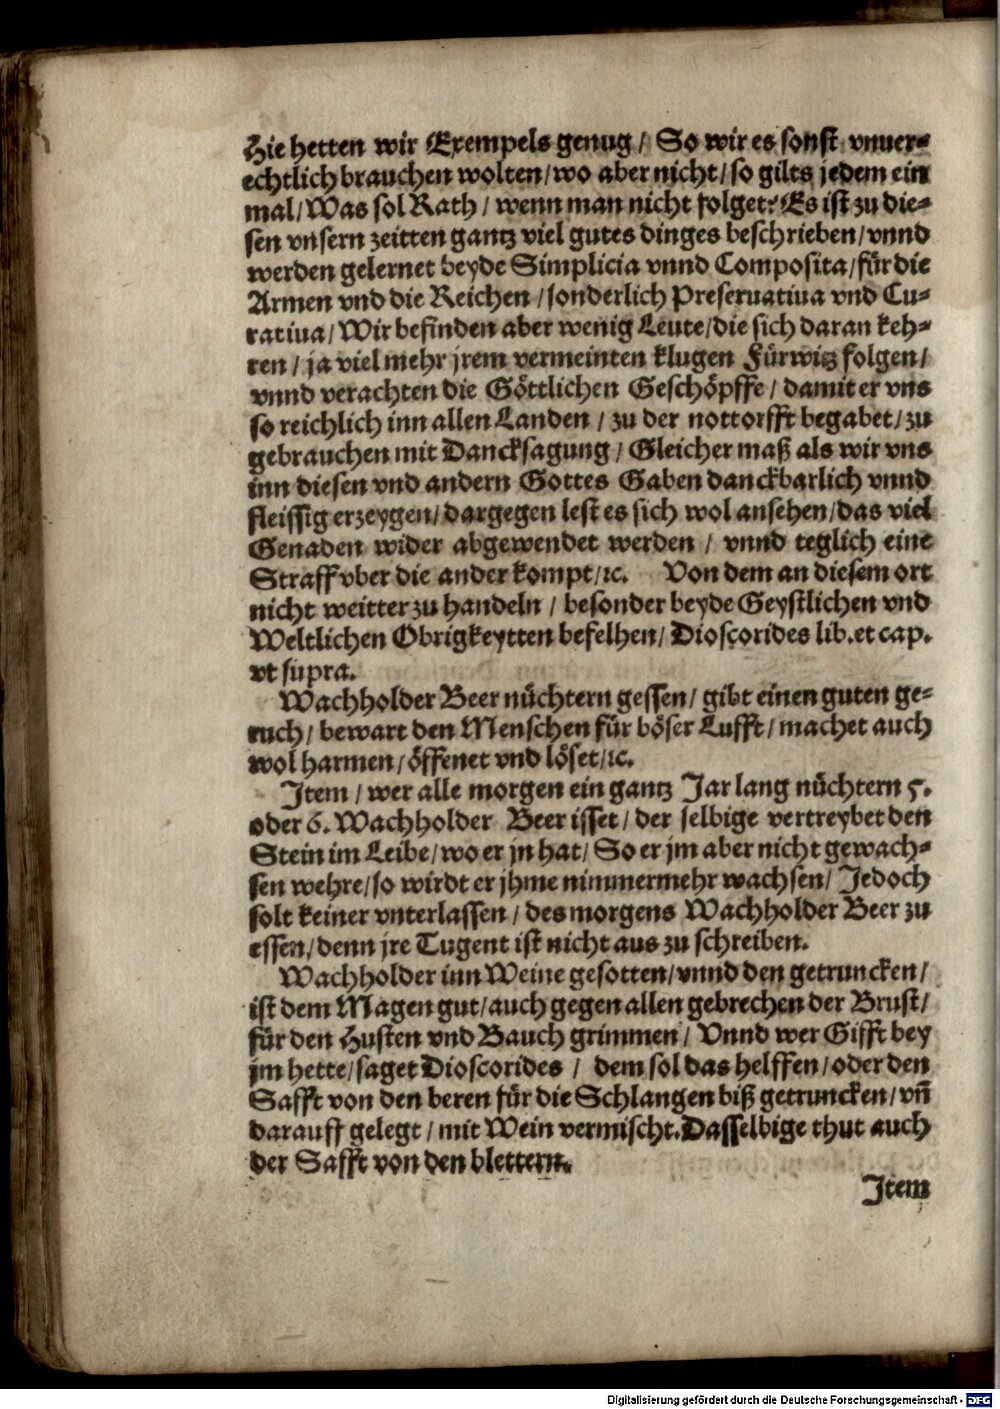 Hie hetten wir Exempels genug / So wir es sonst vnuer-
echtlich brauchen wolten / wo aber nicht / so gilts jedem ein
mal / Was sol Rath / wenn man nicht folget? Es ist zu die-
sen vnsern zeitten gantz viel gutes dinges beschrieben / vnnd
werden gelernet beyde Simplicia vnnd Composita / für die
Armen vnd die Reichen / sonderlich Preseruatiua vnd Cu-
ratiua / Wir befinden aber wenig Leute / die sich daran keh-
ren / ja viel mehr jrem vermeinten klugen Fürwitz folgen /
vnnd verachten die Göttlichen Geschöpffe / damit er vns
so reichlich inn allen Landen / zu der nottorfft begabet / zu
gebrauchen mit Dancksagung / Gleicher maß als wir vns
inn diesen vnd andern Gottes Gaben danckbarlich vnnd
fleissig erzeygen / dargegen lest es sich wol ansehen / das viel
Genaden wider abgewendet werden / vnnd teglich eine
Straff vber die ander kompt / ꝛc. Von dem an diesem ort
nicht weitter zu handeln / besonder beyde Geystlichen vnd
Weltlichen Obrigkeytten befelhen / Dioscorides lib. et cap.
vt supra.
Wachholder Beer nüchtern gessen / gibt einen guten ge-
ruch / bewart den Menschen für böser Lufft / machet auch
wol harmen / öffenet vnd löset / ꝛc.
Item / wer alle morgen ein gantz Jar lang nüchtern 5.
oder 6. Wachholder Beer isset / der selbige vertreybet den
Stein im Leibe / wo er jn hat / So er jm aber nicht gewach-
sen wehre / so wirdt er jhme nimmermehr wachsen / Jedoch
solt keiner vnterlassen / des morgens Wachholder Beer zu
essen / denn jre Tugent ist nicht aus zu schreiben.
Wachholder inn Weine gesotten / vnnd den getruncken /
ist dem Magen gut / auch gegen allen gebrechen der Brust /
für den Husten vnd Bauch grimmen / Vnnd wer Gifft bey
jm hette / saget Dioscorides / dem sol das helffen / oder den
Safft von den beren für die Schlangen biß getruncken / vñ
darauff gelegt / mit Wein vermischt. Dasselbige thut auch
der Safft von den blettern.
Item
Digitalisierung gefördert durch die Deutsche Forschungsgemeinschaft - DFG